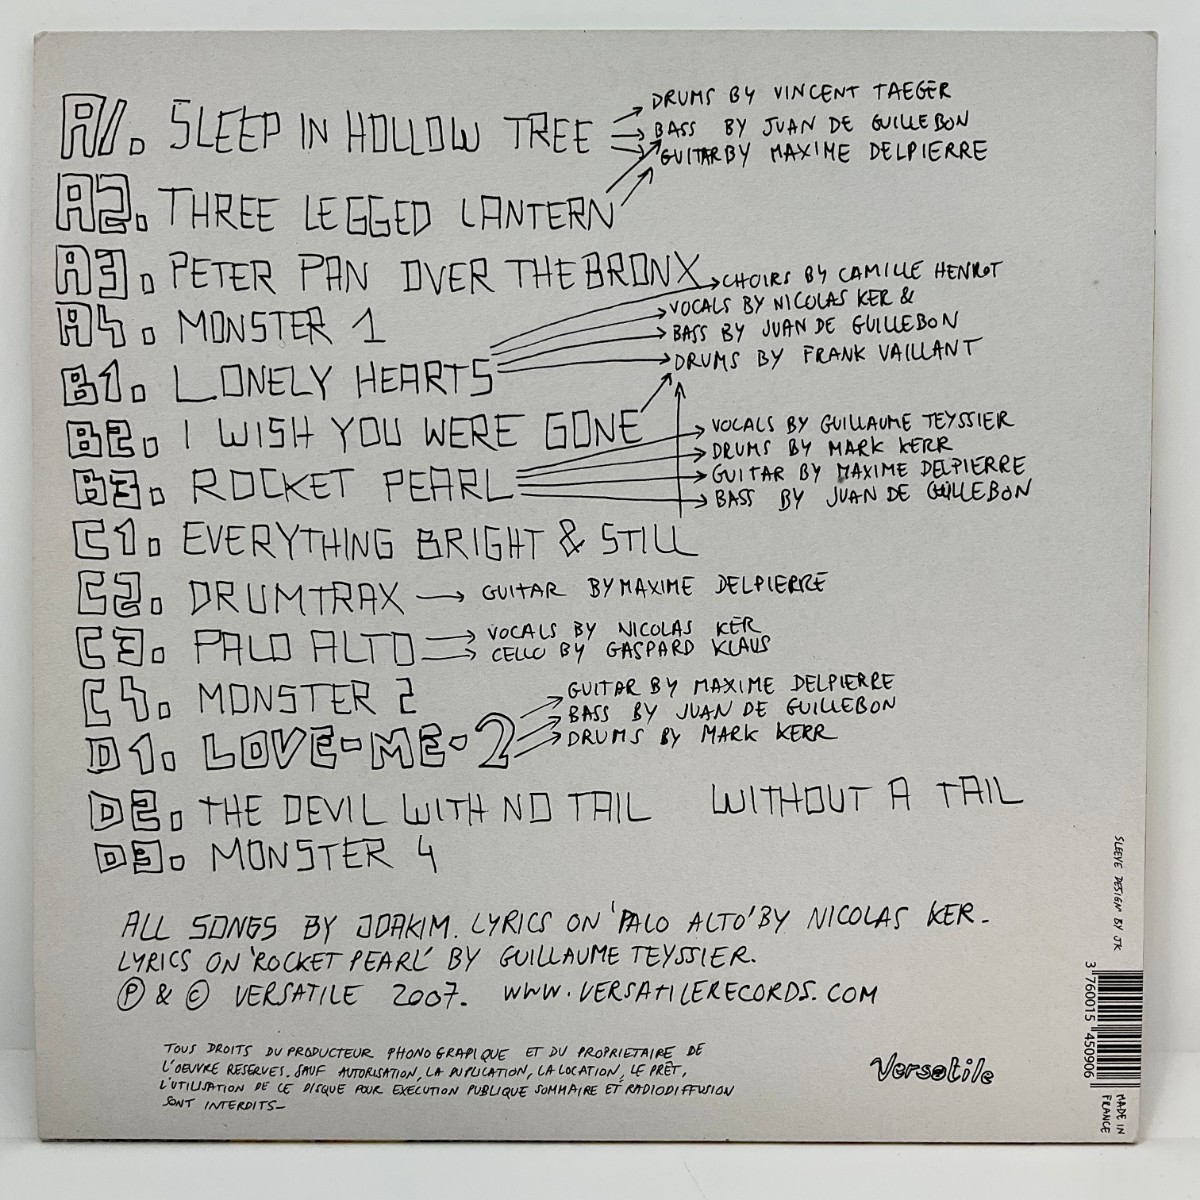 A1. SLEEP IN HOLLOW TREE
DRUMS BY VINCENT TAEGER
BASS BY JUAN DE GUILLEBON
GUITAR BY MAXIME DELPIERRE
A2. THREE LEGGED LANTERN
A3. PETER PAN OVER THE BRONX
A4. MONSTER 1
B1. LONELY HEARTS
CHOIRS BY CAMILLE HENROT
VOCALS BY NICOLAS KER &
BASS BY JUAN DE GUILLEBON
DRUMS BY FRANK VAILLANT
B2. I WISH YOU WERE GONE
B3. ROCKET PEARL
VOCALS BY GUILLAUME TEYSSIER
DRUMS BY MARK KERR
GUITAR BY MAXIME DELPIERRE
BASS BY JUAN DE GUILLEBON
C1. EVERYTHING BRIGHT & STILL
C2. DRUMTRAX
GUITAR BY MAXIME DELPIERRE
C3. PALO ALTO
VOCALS BY NICOLAS KER
CELLO BY GASPARD KLAUS
C4. MONSTER 2
D1. LOVE-ME-2
GUITAR BY MAXIME DELPIERRE
BASS BY JUAN DE GUILLEBON
DRUMS BY MARK KERR
D2. THE DEVIL WITH NO TAIL WITHOUT A TAIL
D3. MONSTER 4
ALL SONGS BY JOAKIM. LYRICS ON 'PALO ALTO' BY NICOLAS KER-
LYRICS ON 'ROCKET PEARL' BY GUILLAUME TEYSSIER.
℗ & © VERSATILE 2007. WWW.VERSATILERECORDS.COM
TOUS DROITS DU PRODUCTEUR PHONOGRAPIQUE ET DU PROPRIETAIRE DE
L'OEUVRE RESERVES. SAUF AUTORISATION, LA DUPLICATION, LA LOCATION, LE PRÊT,
L'UTILISATION DE CE DISQUE POUR EXECUTION PUBLIQUE SOMMAIRE ET RADIODIFFUSION
SONT INTERDITS-
Versatile
SLEEVE DESIGN BY JK
3 760015 450906
MADE IN
FRANCE